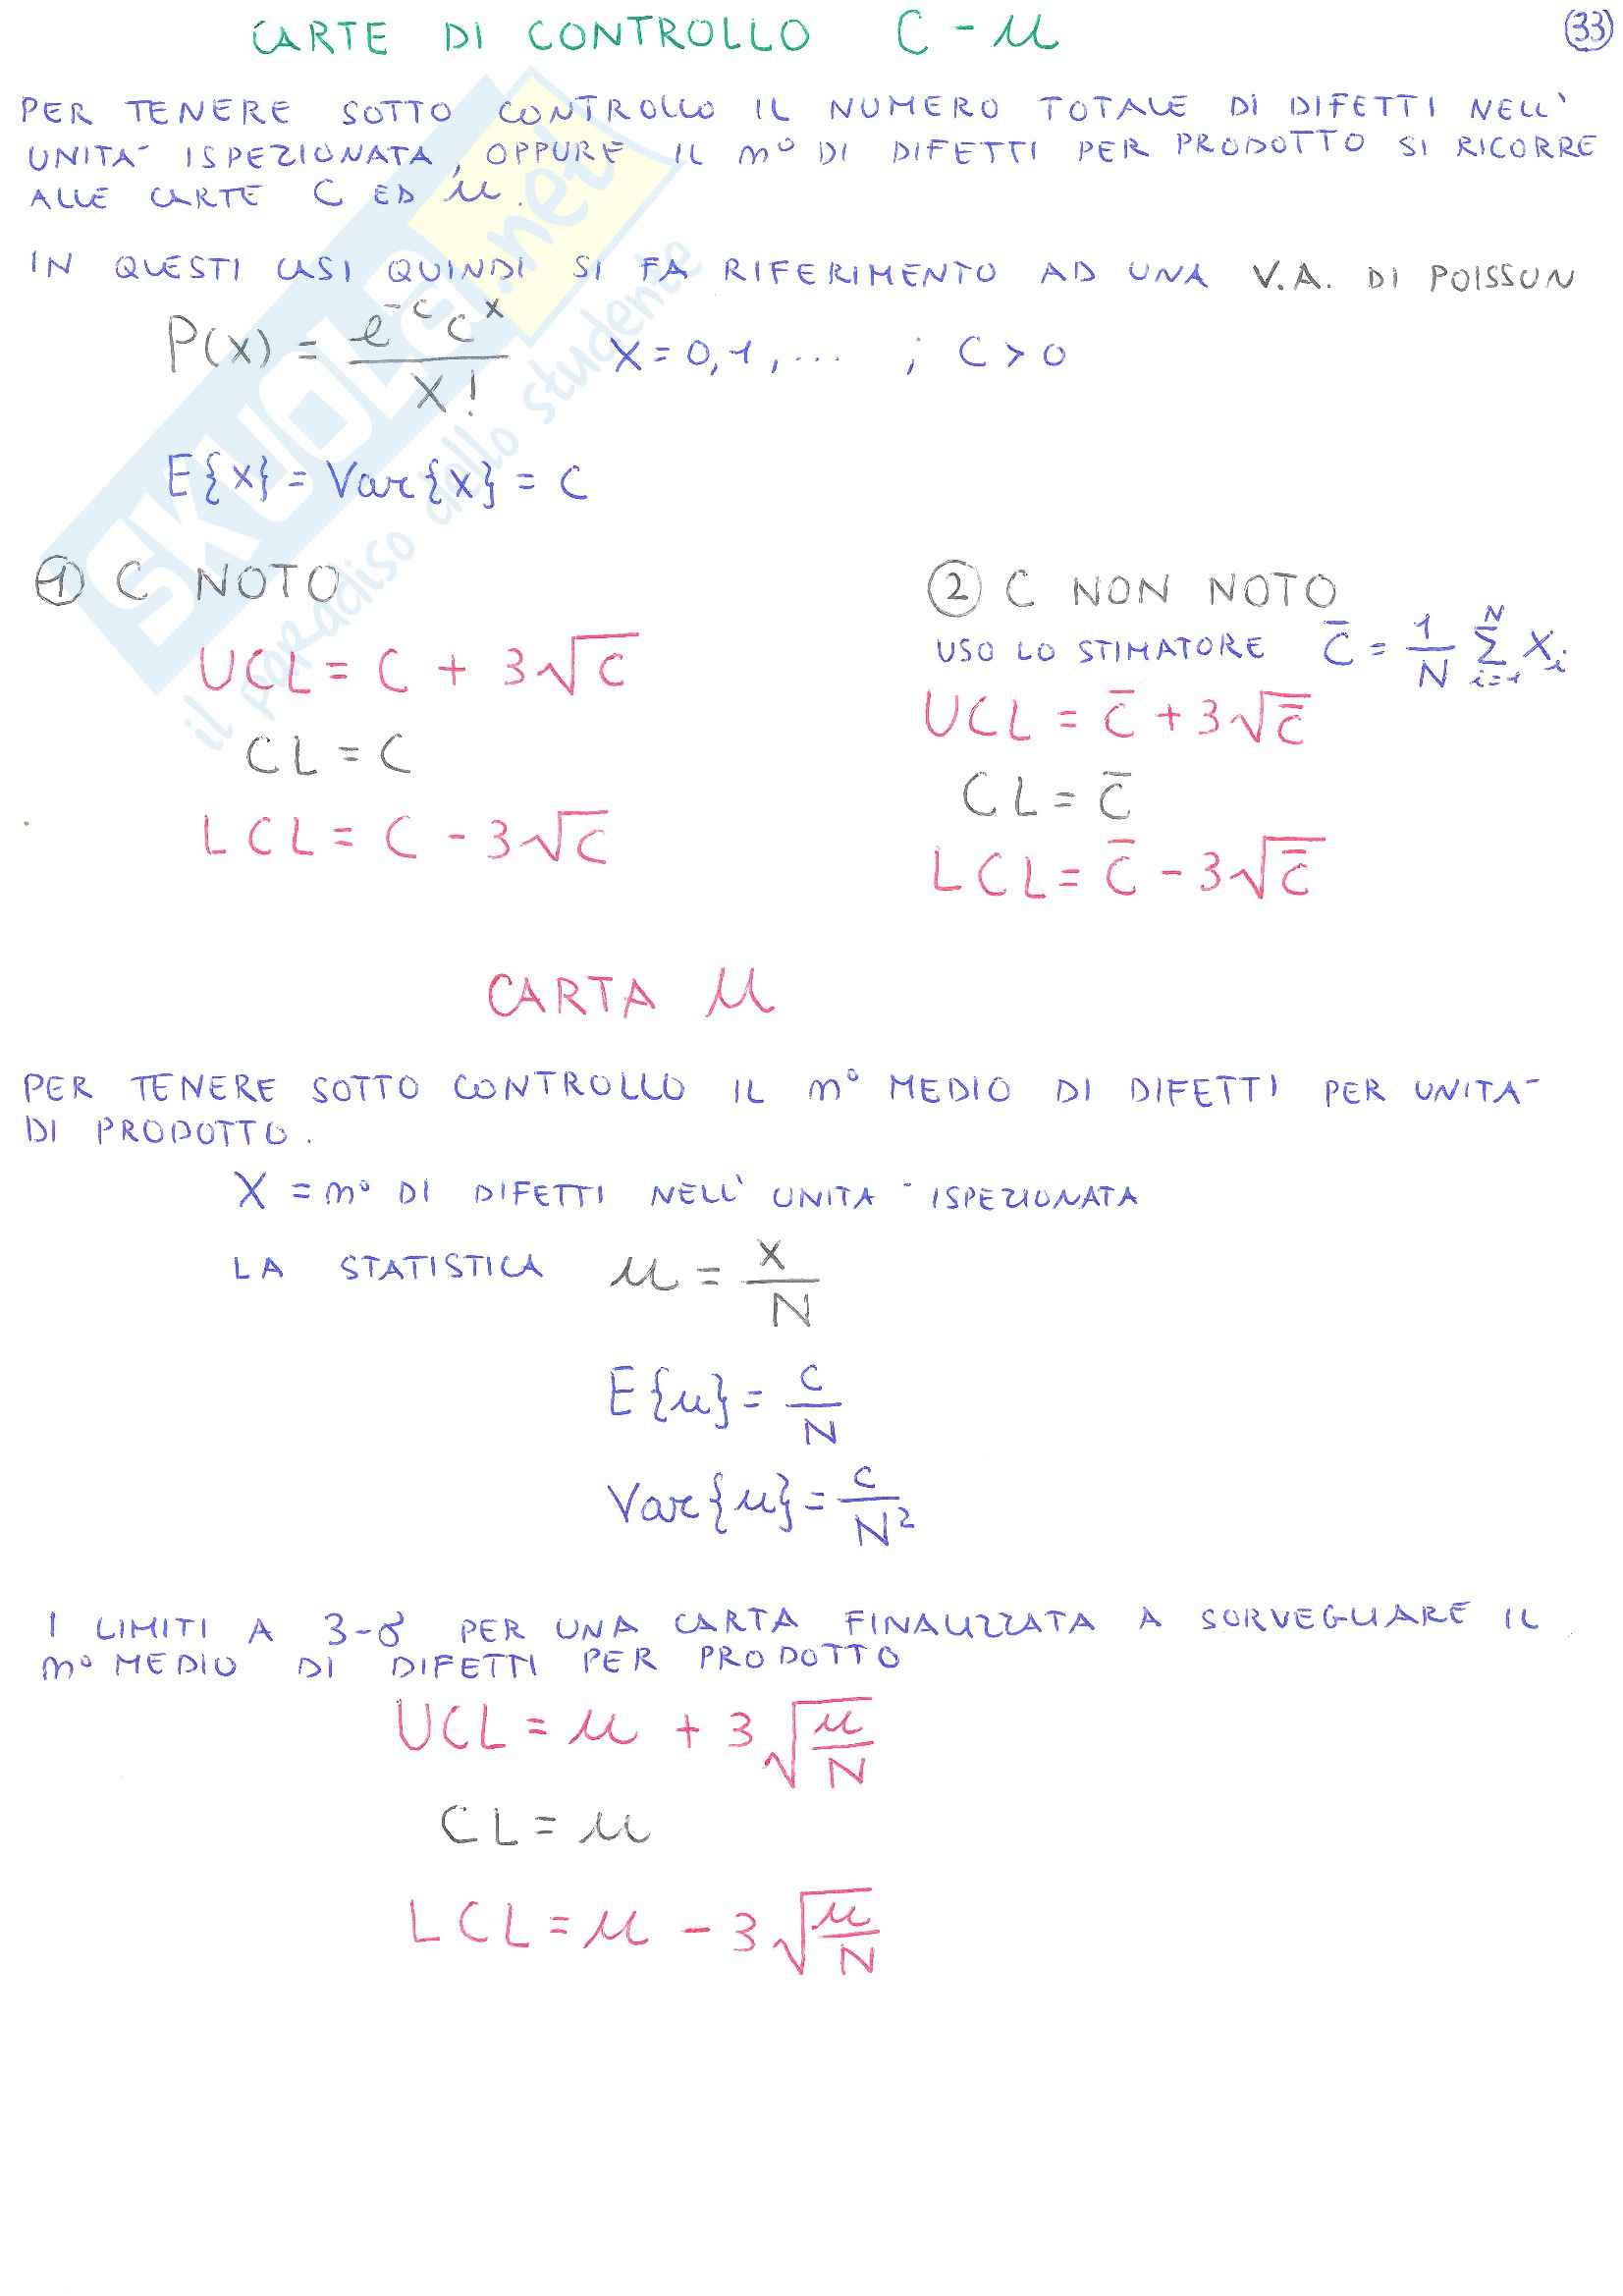 CARTE DI CONTROLLO C - u
33
PER TENERE SOTTO CONTROLLO IL NUMERO TOTALE DI DIFETTI NELL'
UNITA' ISPEZIONATA, OPPURE IL n° DI DIFETTI PER PRODOTTO SI RICORRE
ALLE CARTE C ED u.
IN QUESTI CASI QUINDI SI FA RIFERIMENTO AD UNA V.A. DI POISSON
P(x) = e^-c c^x / x! x = 0,1,... ; C > 0
E{x} = Var{x} = C
① C NOTO
UCL = C + 3√c
CL = C
LCL = C - 3√c
② C NON NOTO
USO LO STIMATORE c̄ = 1/N Σ i=1 N Xi
UCL = c̄ + 3√c̄
CL = c̄
LCL = c̄ - 3√c̄
CARTA u
PER TENERE SOTTO CONTROLLO IL n° MEDIO DI DIFETTI PER UNITA'
DI PRODOTTO.
X = n° DI DIFETTI NELL' UNITA' ISPEZIONATA
LA STATISTICA u = x/N
E{u} = c/N
Var{u} = c/N²
I LIMITI A 3-σ PER UNA CARTA FINALIZZATA A SORVEGLIARE IL
n° MEDIO DI DIFETTI PER PRODOTTO
UCL = u + 3√u/N
CL = u
LCL = u - 3√u/N
SKUOLA.net
il paradiso dello studente